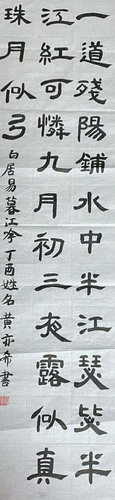 一道殘陽鋪水中半江瑟瑟半
江紅可憐九月初三夜露似真
珠月似弓 白居易暮江吟 丁酉姓名黃亦希書